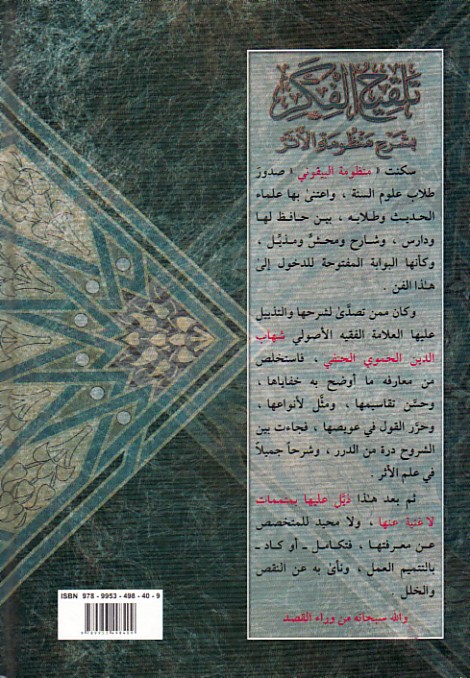 تلقيح الفكر
بشرح منظومة الأثر
سكنت « منظومة البيقوني » صدور
طلاب علوم السنة ، واعتنىٰ بها علماء
الحديث وطلابه ، بين حافظ لها
ودارس ، وشارح ومحشٍّ ومذيِّل ،
وكأنها البوابة المفتوحة للدخول إلىٰ
هٰذا الفن .
وكان ممن تصدَّىٰ لشرحها والتذييل
عليها العلامة الفقيه الأصولي شهاب
الدين الحموي الحنفي ، فاستخلص
من معارفه ما أوضح به خفاياها ،
وحسَّن تقاسيمها ، ومثَّل لأنواعها ،
وحرَّر القول في عويصها ، فجاءت بين
الشروح درة من الدرر ، وشرحاً جميلاً
في علم الأثر .
ثم بعد هٰذا ذيَّل عليها بمتممات
لا غنية عنها ، ولا محيد للمتخصص
عن معرفتها ، فتكامل ـ أو كاد ـ
بالتتميم العمل ، ونأىٰ به عن النقص
والخلل .
والله سبحانه من وراء القصد
ISBN 978 - 9953 - 498 - 40 - 9
9789953498409